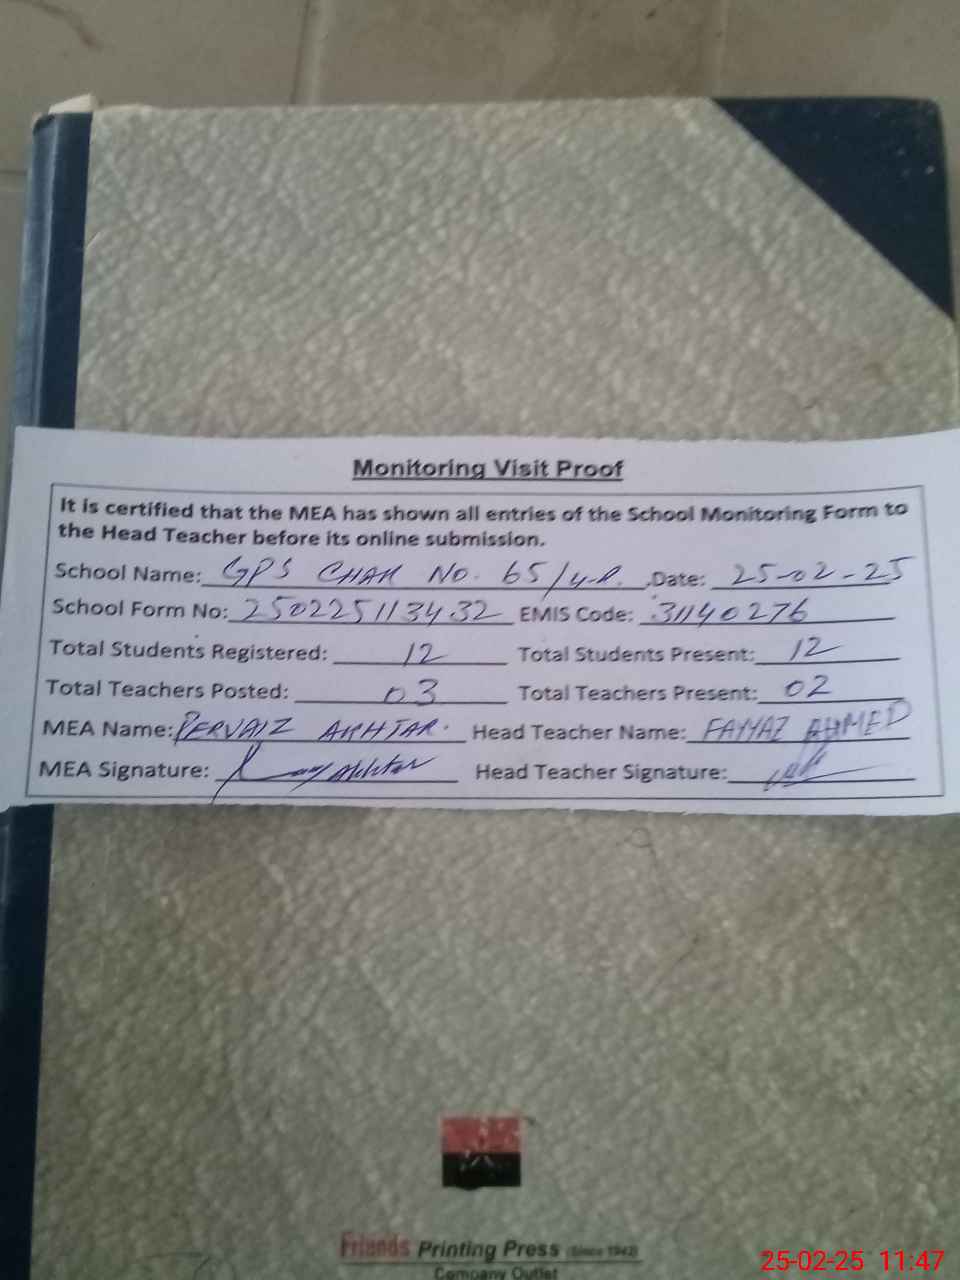 Monitoring Visit Proof
It is certified that the MEA has shown all entries of the School Monitoring Form to
the Head Teacher before its online submission.
School Name: GPS CHAK NO. 65/4-R. Date: 25-02-25
School Form No: 250225113432 EMIS Code: 31140276
Total Students Registered: 12 Total Students Present: 12
Total Teachers Posted: 03 Total Teachers Present: 02
MEA Name: PERVAIZ AKHTAR. Head Teacher Name: FAYYAZ AHMED
MEA Signature: Akhtar Head Teacher Signature:
Friends Printing Press (Since 1942)
Company Outlet
25-02-25 11:47